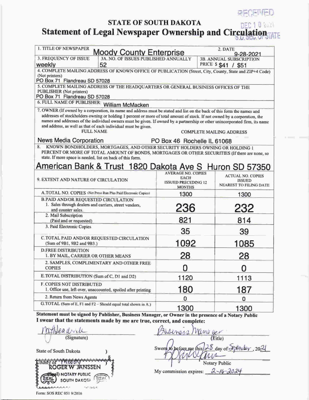 RECEIVED
STATE OF SOUTH DAKOTA
Statement of Legal Newspaper Ownership and Circulation
1. TITLE OF NEWSPAPER
Moody County Enterprise
2. DATE
9-28-2021
3. FREQUENCY OF ISSUE
weekly
3A. NO. OF ISSUES PUBLISHED ANNUALLY
52
3B. ANNUAL SUBSCRIPTION
PRICE $ $41 / $51
4. COMPLETE MAILING ADDRESS OF KNOWN OFFICE OF PUBLICATION (Street, City, County, State and ZIP+4 Code)
(Not printers)
PO Box 71 Flandreau SD 57028
5. COMPLETE MAILING ADDRESS OF THE HEADQUARTERS OR GENERAL BUSINESS OFFICES OF THE
PUBLISHER (Not printers)
PO Box 71 Flandreau SD 57028
6. FULL NAME OF PUBLISHER
William McMacken
7. OWNER (If owned by a corporation, its name and address must be stated and also on the back of this form the names and
addresses of stockholders owning or holding 1 percent or more of total amount of stock. If not owned by a corporation, the
names and addresses of the individual owners must be given. If owned by a partnership or other unincorporated firm, its name
and address, as well as that of each individual must be given.
FULL NAME
COMPLETE MAILING ADDRESS
News Media Corporation
PO Box 46 Rochelle IL 61068
8. KNOWN BONDHOLDERS, MORTGAGES, AND OTHER SECURITY HOLDERS OWNING OR HOLDING 1
PERCENT OR MORE OF TOTAL AMOUNT OF BONDS, MORTGAGES OR OTHER SECURITIES (If there are none, so
state. If more space is needed, list on back of this form.
American Bank & Trust 1820 Dakota Ave S Huron SD 57350
9. EXTENT AND NATURE OF CIRCULATION
AVERAGE NO. COPIES
EACH
ISSUE PRECEDING 12
MONTHS
ACTUAL NO. COPIES
ISSUED
NEAREST TO FILING DATE
A. TOTAL NO. COPIES (Net Press Run Plus Paid Electronic Copies)
1300
1300
B. PAID AND/OR REQUESTED CIRCULATION
1. Sales through dealers and carriers, street vendors,
and counter sales
236
232
2. Mail Subscription
(Paid and or requested)
821
814
3. Paid Electronic Copies
35
39
C. TOTAL PAID AND/OR REQUESTED CIRCULATION
(Sum of 9B1, 9B2 and 9B3)
1092
1085
D. FREE DISTRIBUTION
1. BY MAIL, CARRIER OR OTHER MEANS
28
28
2. SAMPLES, COMPLIMENTARY AND OTHER FREE
COPIES
0
0
E. TOTAL DISTRIBUTION (Sum of C, D1 and D2)
1120
1113
F. COPIES NOT DISTRIBUTED
1. Office use, left over, unaccounted, spoiled after printing
180
187
2. Return from News Agents
0
0
G. TOTAL (Sum of E, F1 and F2 - Should equal total shown in A.)
1300
1300
Statement must be signed by Publisher, Business Manager, or Owner in the presence of a Notary Public
I swear that the statements made by me are true, correct, and complete:
Business Manager
(Signature)
(Title)
State of South Dakota )
Sworn to before me this 28 day of September, 2021
ROGER W JANSSEN
NOTARY PUBLIC
SOUTH DAKOTA
SEAL
Notary Public
My commission expires:
Form: SOS REC 051 9/2016